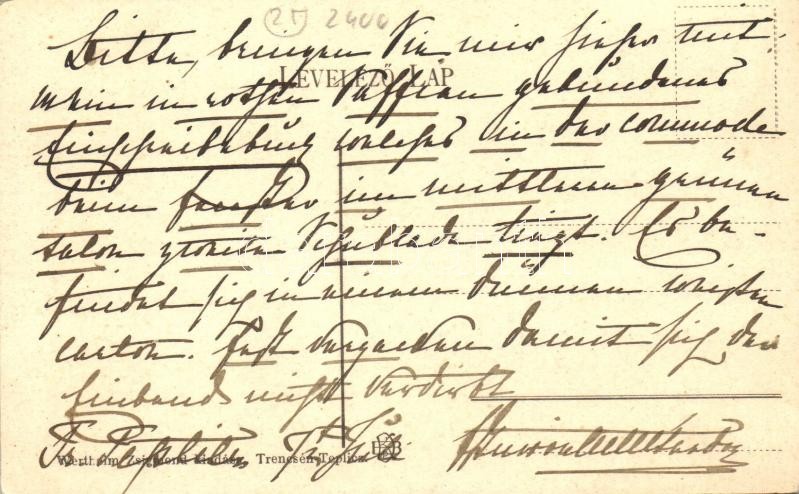 2400
Bitte, bringen Sie mir hieher mit
LEVELEZŐ LAP
mein in rothen Saffian gebundenes
Einschreibebuch welches in der commode
beim Fenster im mittleren grünen
salon zweite Schublade liegt. Es be-
findet sich in einem dünnen weißen
carton. Fest verpacken damit sich der
Einband nicht verdirbt
Wertheim Zsigmond kiadása, Trencsén-Teplicz.